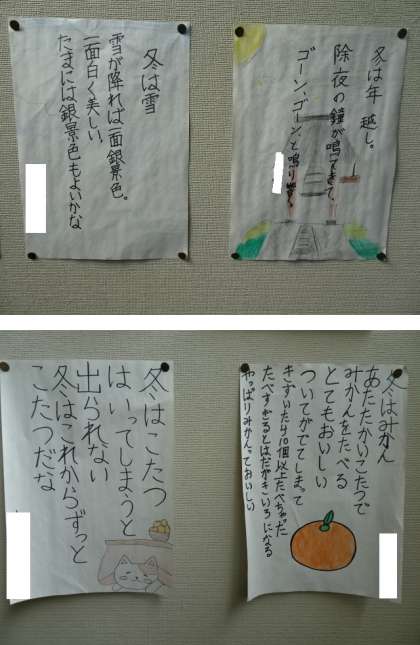 冬は雪
雪が降れば一面銀景色。
一面白く美しい、
たまには銀景色もよいかな
冬は年越し。
除夜の鐘が鳴ってきて、
ゴーン、ゴーン、と鳴り響く
冬はこたつ
はいってしまうと
出られない
冬はこれからずっと
こたつだな
冬はみかん
あたたかいこたつで
みかんをたべる
とてもおいしい
ついてがでてしまって
きずいたら10個以上たべちゃった
たべすぎるとはだがきいろになる
やっぱりみかんっておいしい